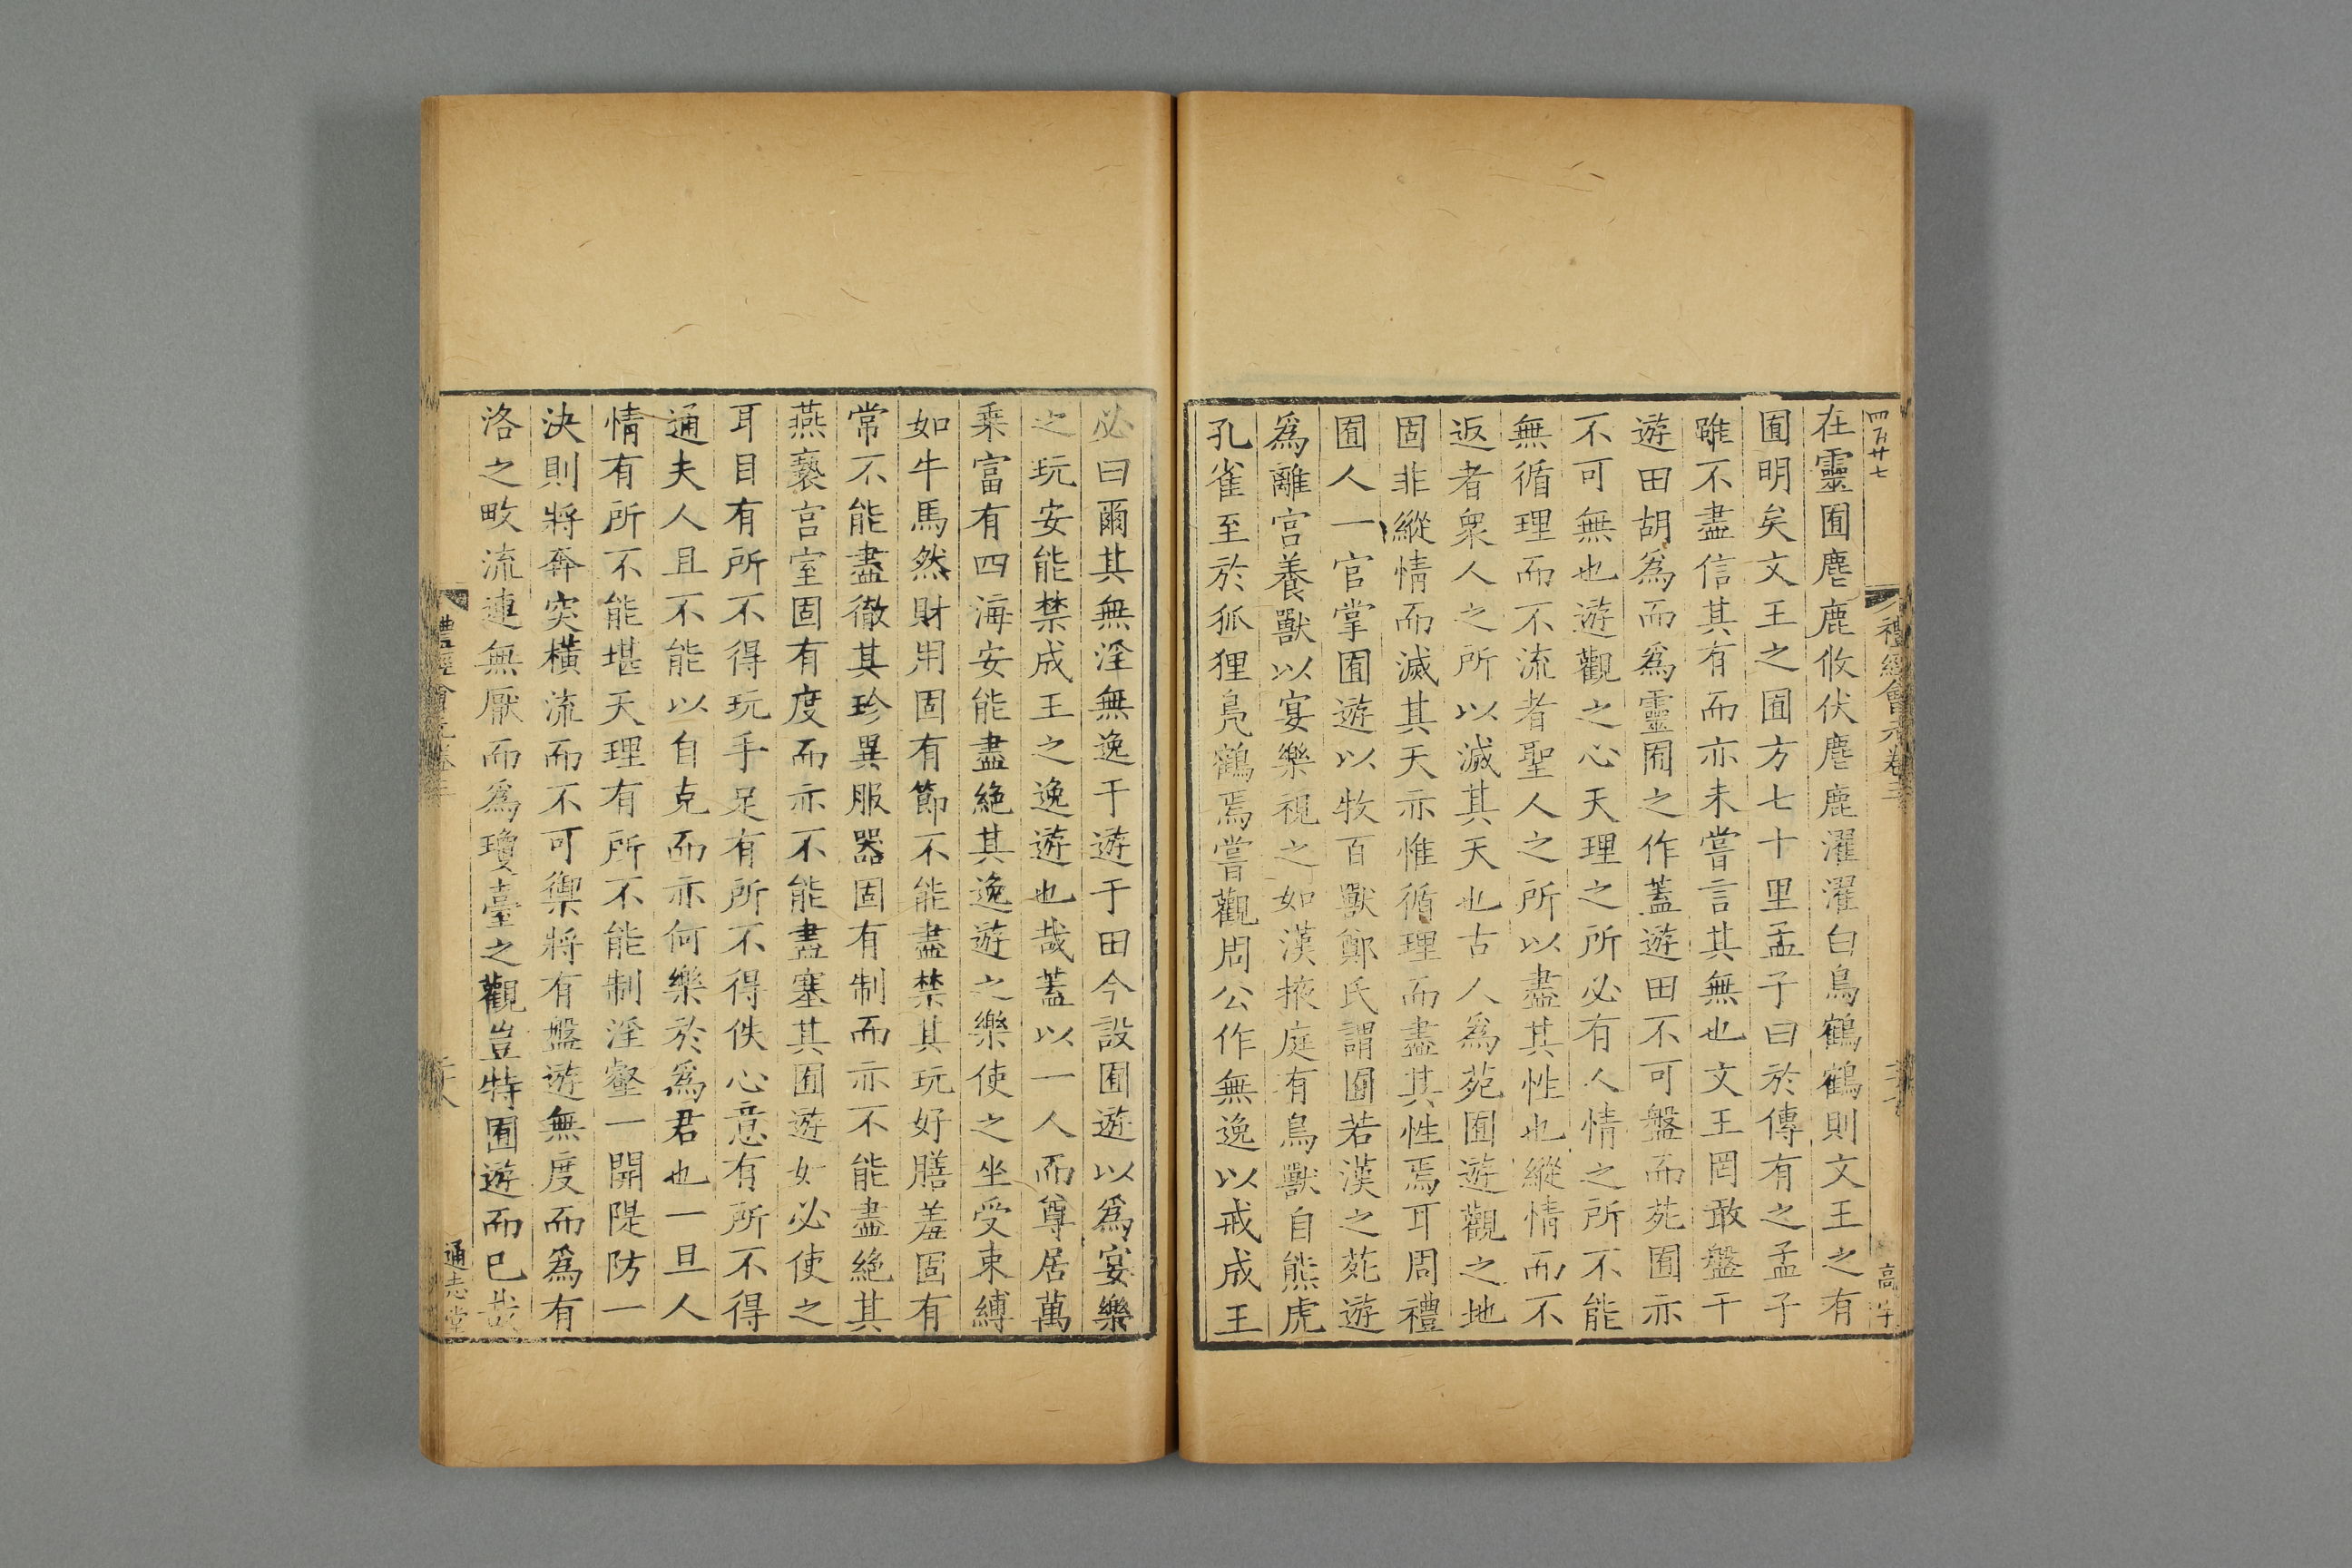 四百廿七
禮經會元卷三
高
在靈囿麀鹿攸伏麀鹿濯濯白鳥鶴鶴則文王之有
囿明矣文王之囿方七十里孟子曰於傳有之孟子
雖不盡信其有而亦未嘗言其無也文王罔敢盤于
遊田胡爲而爲靈囿之作蓋遊田不可盤而苑囿亦
不可無也遊觀之心天理之所必有人情之所不能
無循理而不流者聖人之所以盡其性也縱情而不
返者衆人之所以滅其天也古人爲苑囿遊觀之地
固非縱情而滅其天亦惟循理而盡其性焉耳周禮
囿人一官掌囿遊以牧百獸鄭氏謂囿若漢之苑遊
爲離宮養獸以宴樂視之如漢掖庭有鳥獸自熊虎
孔雀至於狐狸鳧鶴焉嘗觀周公作無逸以戒成王
必曰爾其無淫無逸于遊于田今設囿遊以爲宴樂
之玩安能禁成王之逸遊也哉蓋以一人而尊居萬
乗富有四海安能盡絶其逸遊之樂使之坐受束縛
如牛馬然財用固有節不能盡禁其玩好膳羞固有
常不能盡徹其珍異服器固有制而亦不能盡絶其
燕褻宮室固有度而亦不能盡塞其囿遊如必使之
耳目有所不得玩手足有所不得佚心意有所不得
通夫人且不能以自克而亦何樂於爲君也一旦人
情有所不能堪天理有所不能制淫壑一開隄防一
決則將奔突橫流而不可禦將有盤遊無度而爲有
洛之畋流連無厭而爲瓊臺之觀豈特囿遊而已哉
禮經會元卷三
通志堂